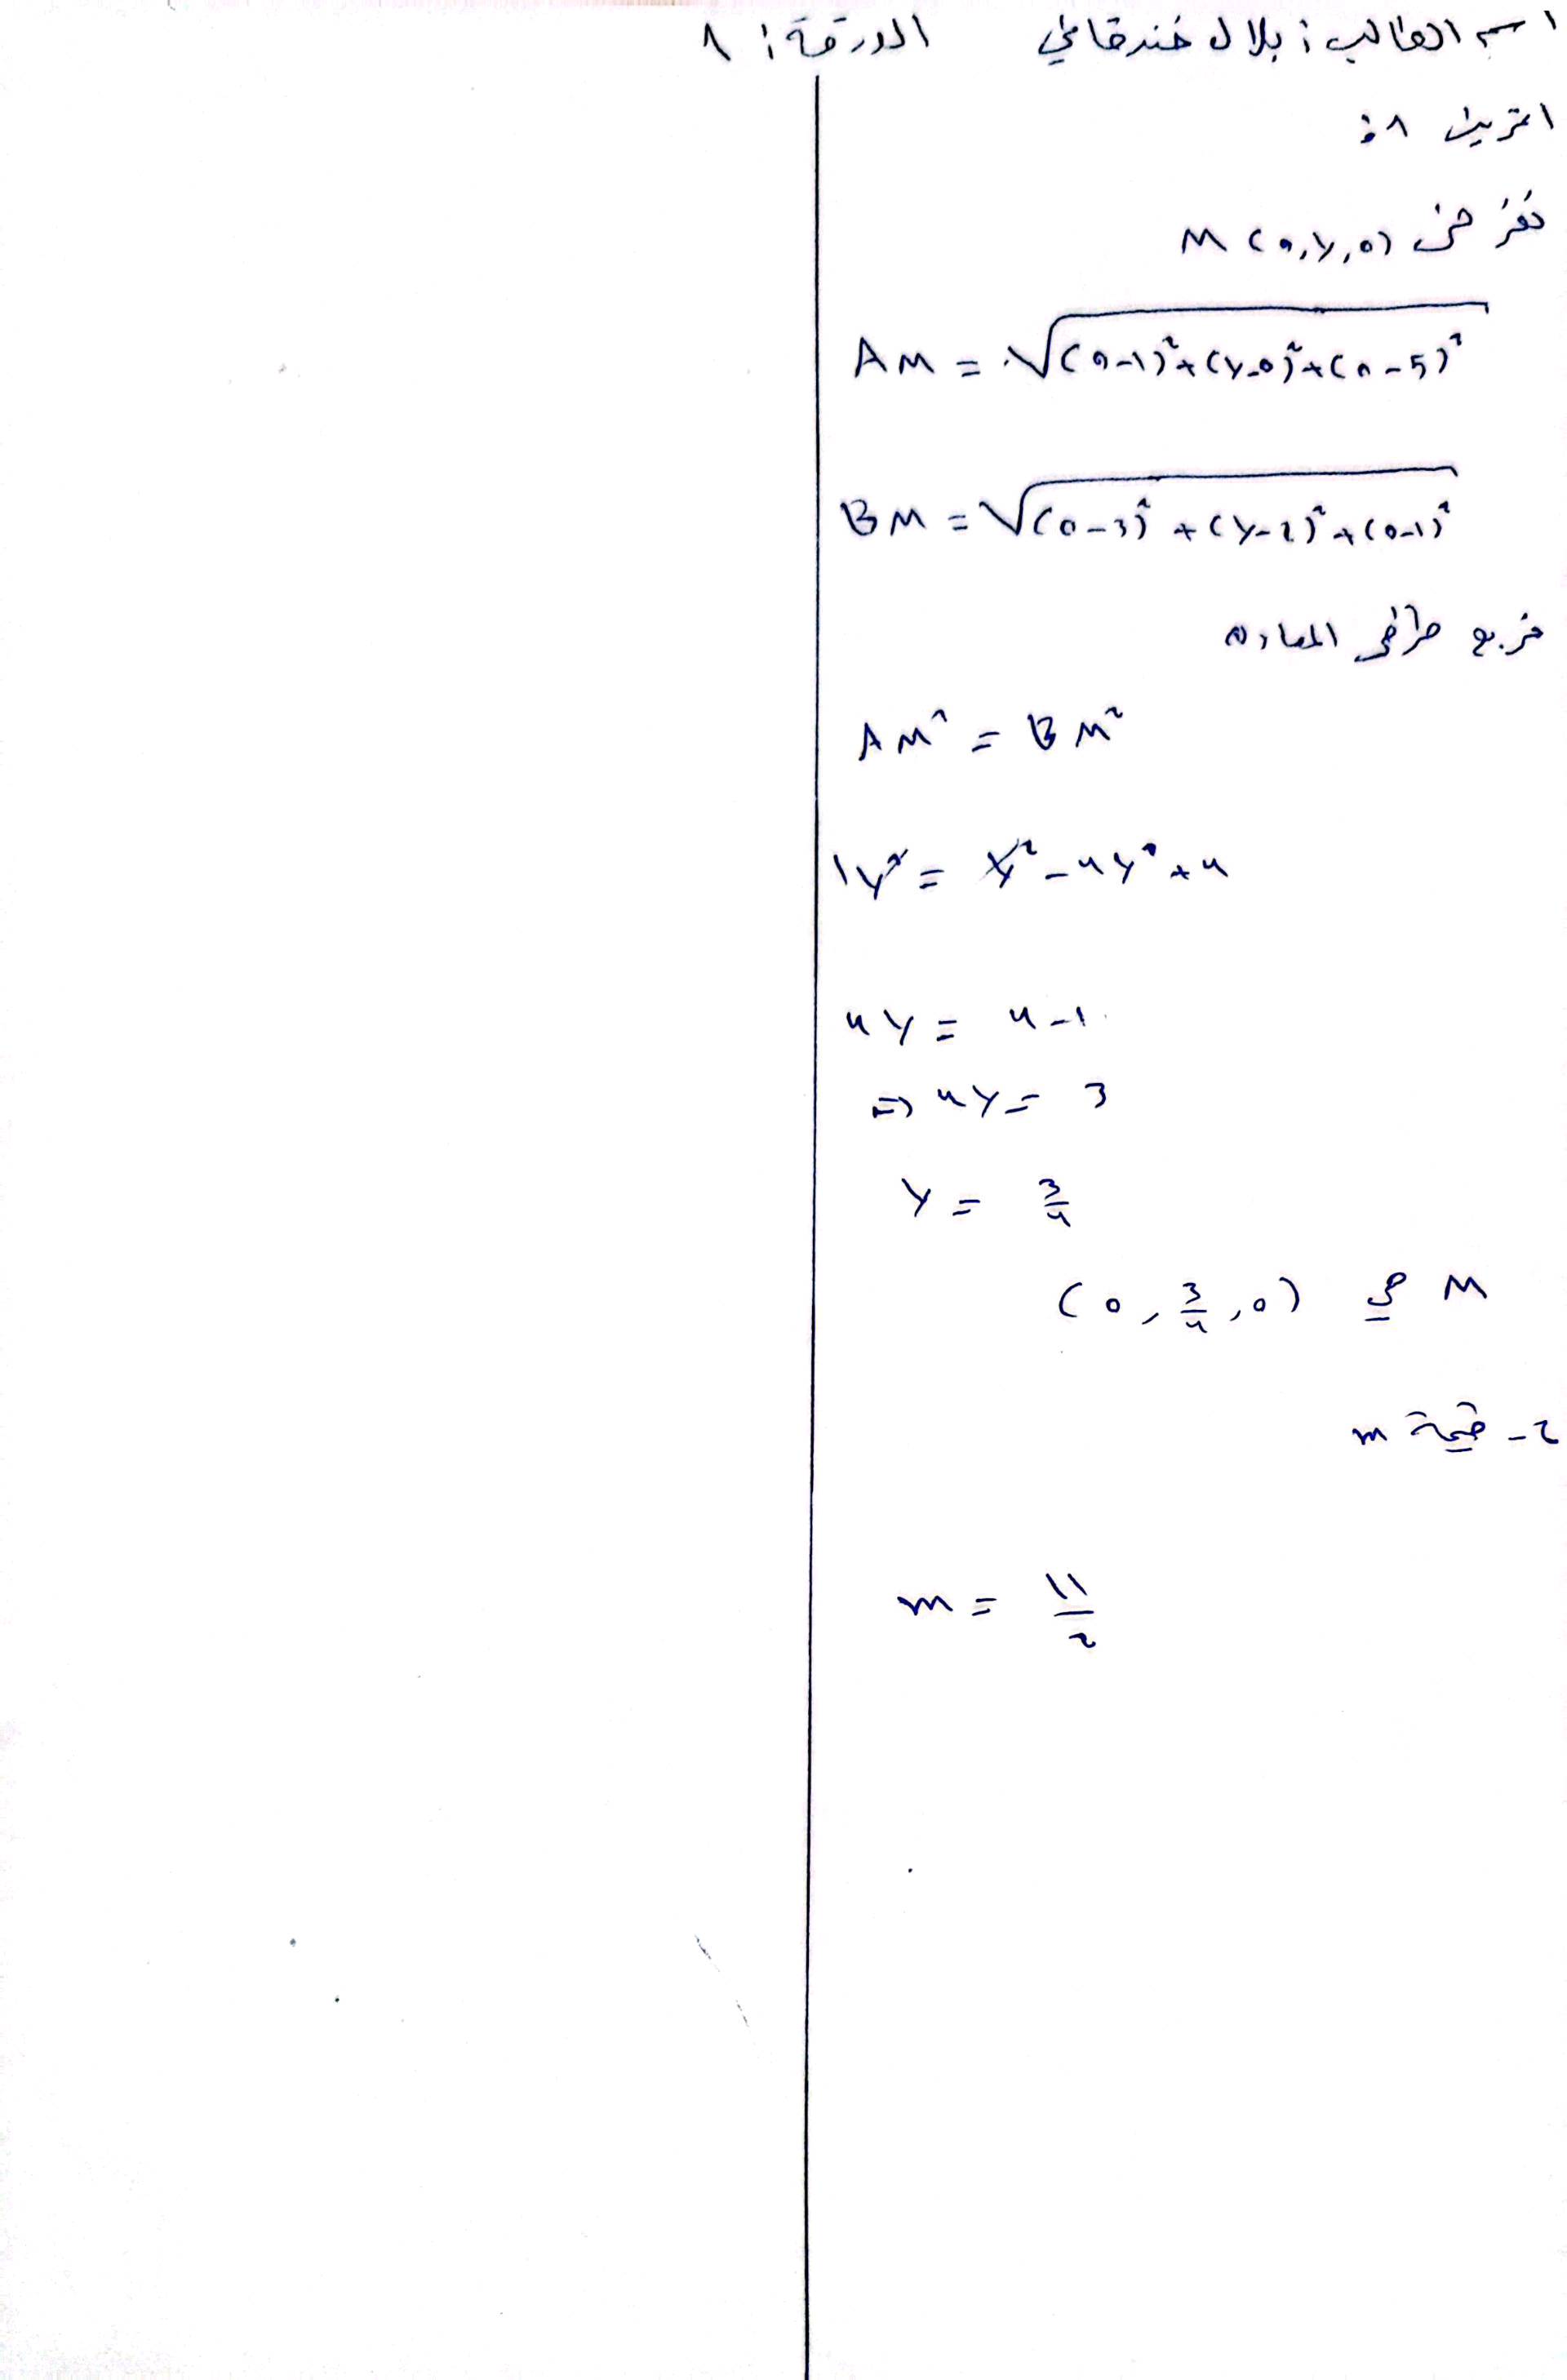 اسم الطالب: بلال خندقاني الورقة: ١
التمرين ١:
نفرض M(0,y,0)
AM = √(0-1)²+(y-0)²+(0-5)²
BM = √(0-3)²+(y-2)²+(0-1)²
نربع طرفي المعادلة
AM² = BM²
1y² = y²-4y+4
4y = 4-1
=> 4y = 3
y = 3/4
M هي (0, 3/4, 0)
2- قيمة m
m = 11/2